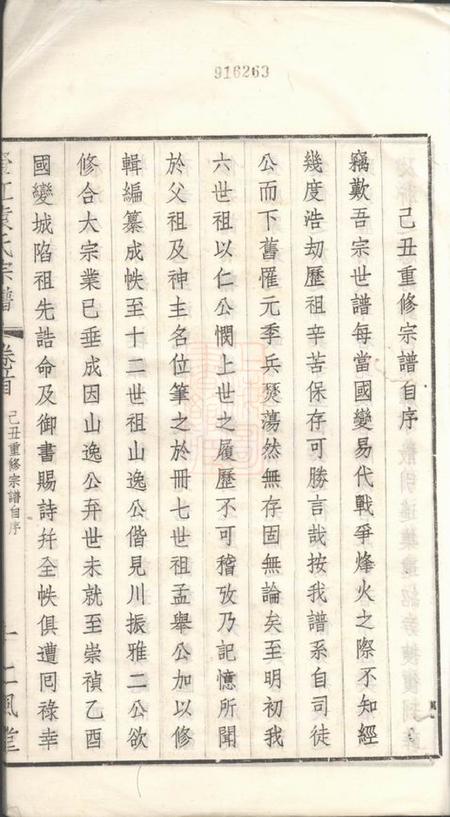 916263
己丑重修宗譜自序
竊歎吾宗世譜每當國變易代戰爭烽火之際不知經
幾度浩劫歷祖辛苦保存可勝言哉按我譜系自司徒
公而下舊罹元季兵燹蕩然無存固無論矣至明初我
六世祖以仁公憫上世之履歷不可稽攷乃記憶所聞
於父祖及神主名位筆之於冊七世祖孟舉公加以修
輯編纂成帙至十二世祖山逸公偕見川振雅二公欲
修合大宗業已垂成因山逸公弃世未就至崇禎乙酉
國變城陷祖先誥命及御書賜詩幷全帙俱遭囘祿幸
澄江袁氏宗譜 卷首 己丑重修宗譜自序